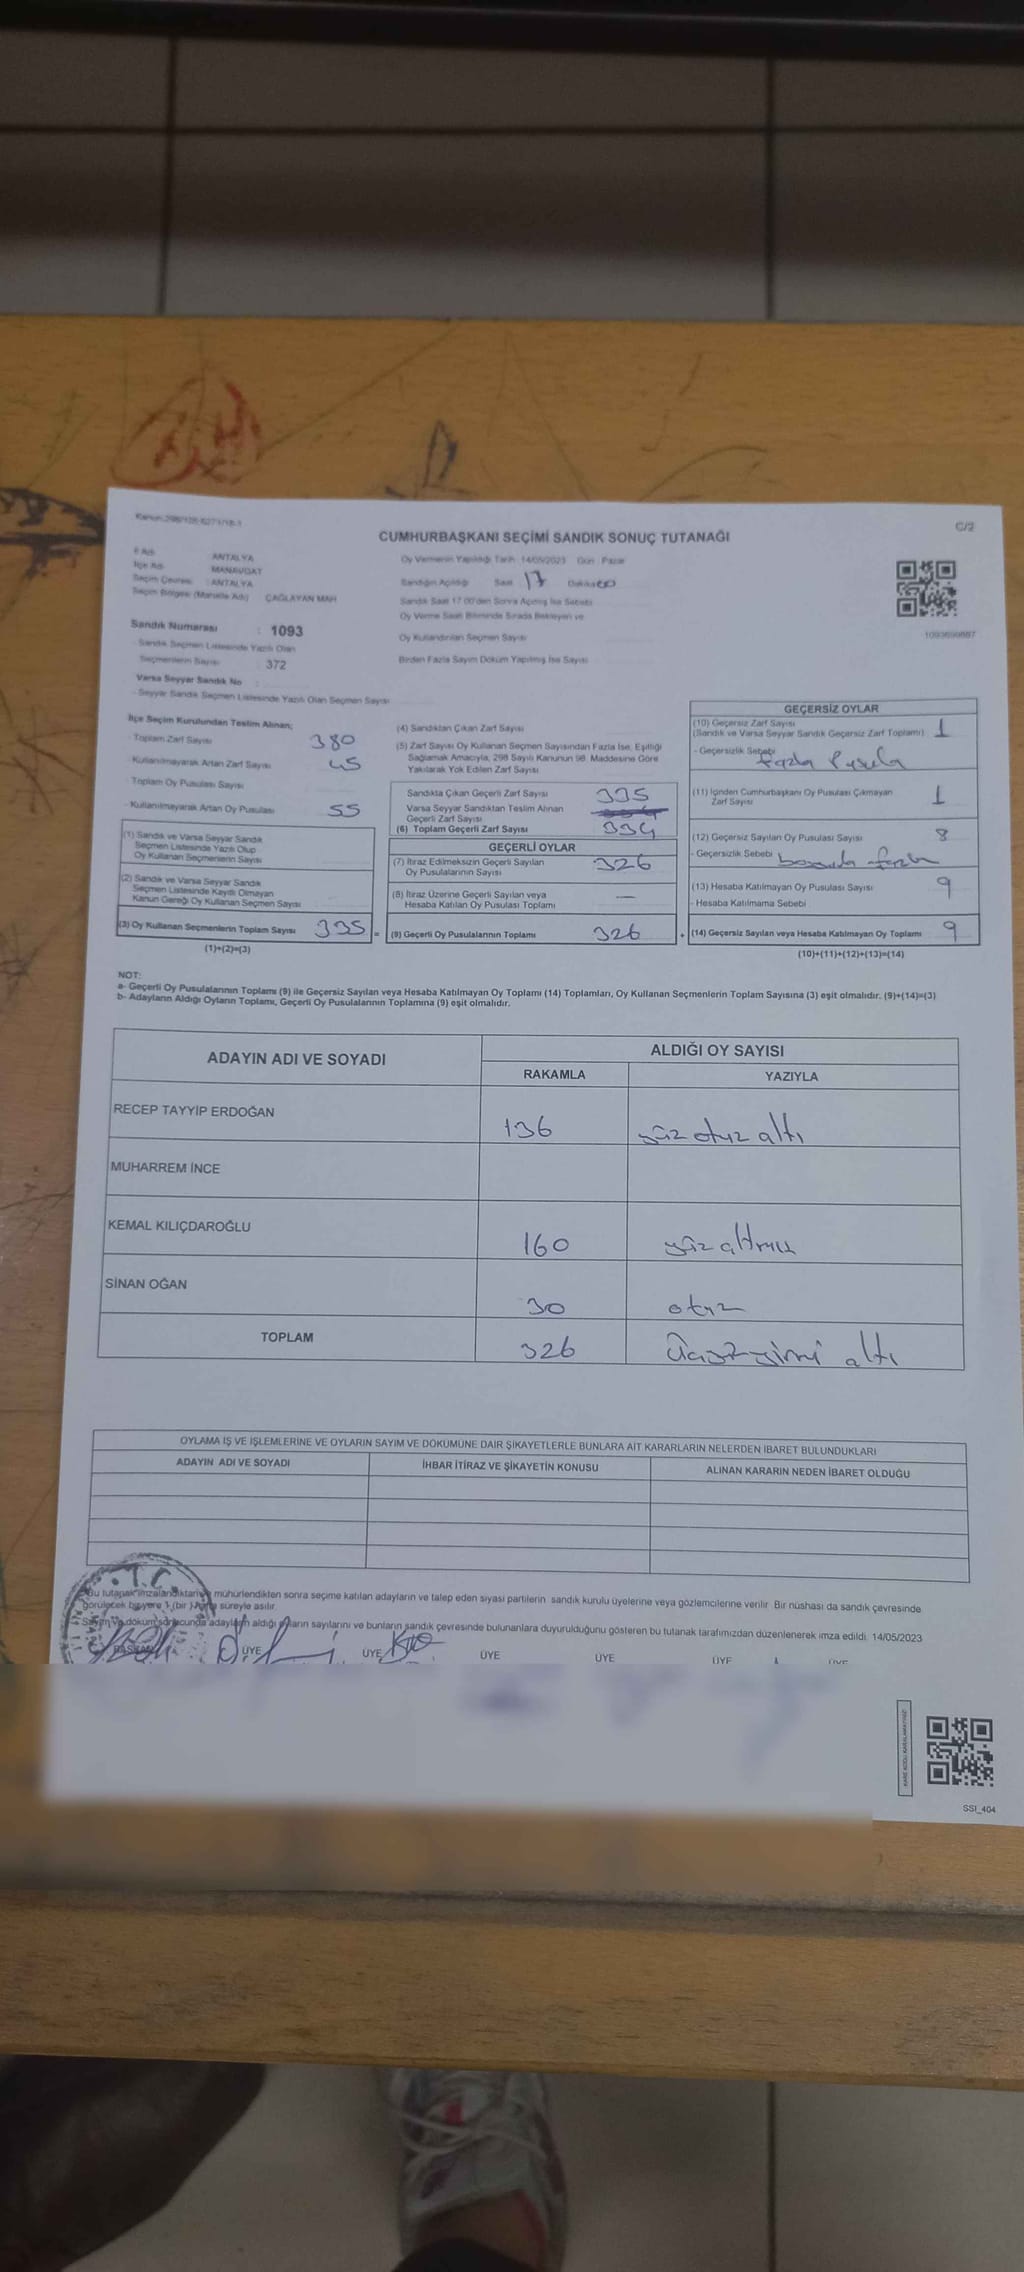 Kanun:298/105-6271/18-1
C/2
CUMHURBAŞKANI SEÇİMİ SANDIK SONUÇ TUTANAĞI
İl Adı ANTALYA
İlçe Adı MANAVGAT
Seçim Çevresi : ANTALYA
Seçim Bölgesi (Mahalle Adı) ÇAĞLAYAN MAH
Sandık Numarası : 1093
- Sandık Seçmen Listesinde Yazılı Olan
Seçmenlerin Sayısı : 372
Varsa Seyyar Sandık No
- Seyyar Sandık Seçmen Listesinde Yazılı Olan Seçmen Sayısı
Oy Vermenin Yapıldığı Tarih : 14/05/2023 Gün : Pazar
Sandığın Açıldığı Saat 17 Dakika 00
Sandık Saat 17.00'den Sonra Açılmış İse Sebebi
Oy Verme Saati Bitiminde Sırada Bekleyen ve
Oy Kullandırılan Seçmen Sayısı
Birden Fazla Sayım Döküm Yapılmış İse Sayısı
1093699887
İlçe Seçim Kurulundan Teslim Alınan;
- Toplam Zarf Sayısı 380
- Kullanılmayarak Artan Zarf Sayısı 45
- Toplam Oy Pusulası Sayısı
- Kullanılmayarak Artan Oy Pusulası 55
(1) Sandık ve Varsa Seyyar Sandık
Seçmen Listesinde Yazılı Olup
Oy Kullanan Seçmenlerin Sayısı
(2) Sandık ve Varsa Seyyar Sandık
Seçmen Listesinde Kayıtlı Olmayan
Kanun Gereği Oy Kullanan Seçmen Sayısı
(3) Oy Kullanan Seçmenlerin Toplam Sayısı 335 =
(1)+(2)=(3)
(4) Sandıktan Çıkan Zarf Sayısı
(5) Zarf Sayısı Oy Kullanan Seçmen Sayısından Fazla İse, Eşitliği
Sağlamak Amacıyla, 298 Sayılı Kanunun 98. Maddesine Göre
Yakılarak Yok Edilen Zarf Sayısı
Sandıkta Çıkan Geçerli Zarf Sayısı 335
Varsa Seyyar Sandıktan Teslim Alınan
Geçerli Zarf Sayısı
(6) Toplam Geçerli Zarf Sayısı 334
GEÇERLİ OYLAR
(7) İtiraz Edilmeksizin Geçerli Sayılan 326
Oy Pusulalarının Sayısı
(8) İtiraz Üzerine Geçerli Sayılan veya —
Hesaba Katılan Oy Pusulası Toplamı
(9) Geçerli Oy Pusulalarının Toplamı 326 +
GEÇERSİZ OYLAR
(10) Geçersiz Zarf Sayısı 1
(Sandık ve Varsa Seyyar Sandık Geçersiz Zarf Toplamı)
- Geçersizlik Sebebi fazla Pusula
(11) İçinden Cumhurbaşkanı Oy Pusulası Çıkmayan 1
Zarf Sayısı
(12) Geçersiz Sayılan Oy Pusulası Sayısı 8
- Geçersizlik Sebebi fazla
(13) Hesaba Katılmayan Oy Pusulası Sayısı 9
- Hesaba Katılmama Sebebi
(14) Geçersiz Sayılan veya Hesaba Katılmayan Oy Toplamı 9
(10)+(11)+(12)+(13)=(14)
NOT:
a- Geçerli Oy Pusulalarının Toplamı (9) ile Geçersiz Sayılan veya Hesaba Katılmayan Oy Toplamı (14) Toplamları, Oy Kullanan Seçmenlerin Toplam Sayısına (3) eşit olmalıdır. (9)+(14)=(3)
b- Adayların Aldığı Oyların Toplamı, Geçerli Oy Pusulalarının Toplamına (9) eşit olmalıdır.
ADAYIN ADI VE SOYADI ALDIĞI OY SAYISI
RAKAMLA YAZIYLA
RECEP TAYYİP ERDOĞAN 136 yüz otuz altı
MUHARREM İNCE
KEMAL KILIÇDAROĞLU 160 yüz altmış
SİNAN OĞAN 30 otuz
TOPLAM 326 Üçyüz yirmi altı
OYLAMA İŞ VE İŞLEMLERİNE VE OYLARIN SAYIM VE DÖKÜMÜNE DAİR ŞİKAYETLERLE BUNLARA AİT KARARLARIN NELERDEN İBARET BULUNDUKLARI
ADAYIN ADI VE SOYADI İHBAR İTİRAZ VE ŞİKAYETİN KONUSU ALINAN KARARIN NEDEN İBARET OLDUĞU
T.C.
Bu tutanak imzalandıktan ve mühürlendikten sonra seçime katılan adayların ve talep eden siyasi partilerin sandık kurulu üyelerine veya gözlemcilerine verilir. Bir nüshası da sandık çevresinde
görülecek bir yere 1 (bir) hafta süreyle asılır.
Sayım ve döküm sonucunda adayların aldığı oyların sayılarını ve bunların sandık çevresinde bulunanlara duyurulduğunu gösteren bu tutanak tarafımızdan düzenlenerek imza edildi. 14/05/2023
BAŞKAN ÜYE ÜYE ÜYE ÜYE ÜYE ÜYE
SSI_404